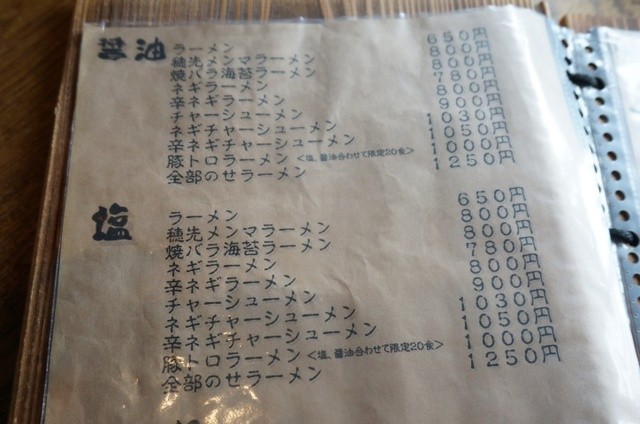 醤油
ラーメン 650円
穂先メンマラーメン 800円
焼バラ海苔ラーメン 800円
ネギラーメン 780円
辛ネギラーメン 800円
チャーシューメン 900円
ネギチャーシューメン 1030円
辛ネギチャーシューメン 1050円
豚トロラーメン <塩、醤油合わせて限定20食> 1000円
全部のせラーメン 1250円
塩
ラーメン 650円
穂先メンマラーメン 800円
焼バラ海苔ラーメン 800円
ネギラーメン 780円
辛ネギラーメン 800円
チャーシューメン 900円
ネギチャーシューメン 1030円
辛ネギチャーシューメン 1050円
豚トロラーメン <塩、醤油合わせて限定20食> 1000円
全部のせラーメン 1250円